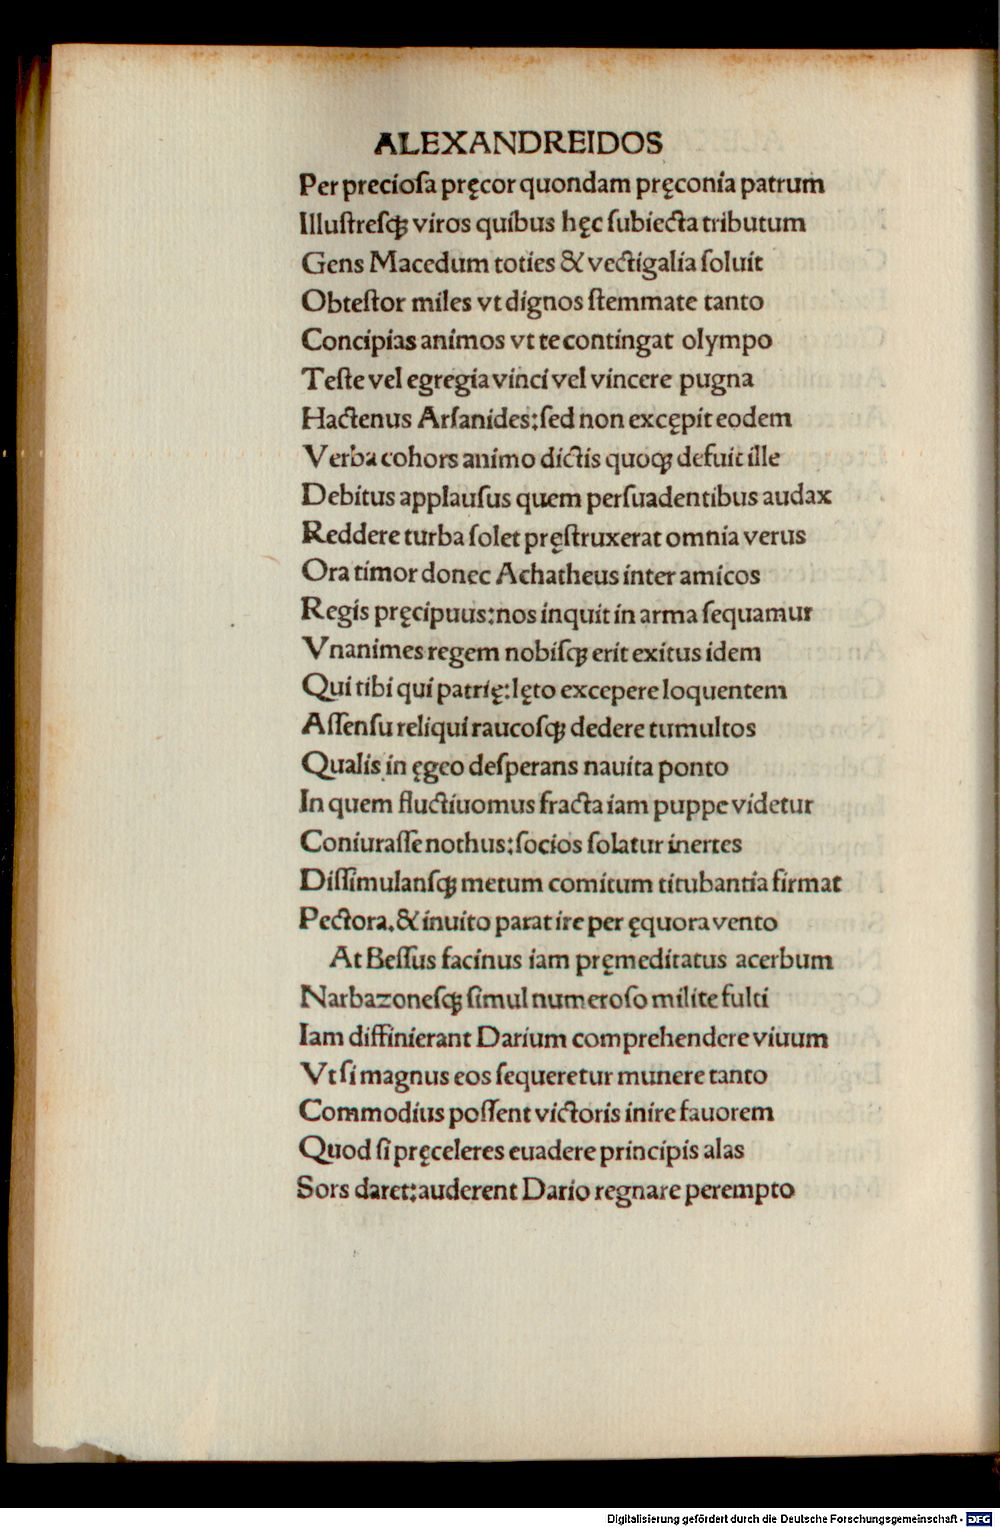 ALEXANDREIDOS
Per precioſa pręcor quondam pręconia patrum
Illuſtreſqꝫ viros quibus hęc ſubiecta tributum
Gens Macedum toties & vectigalia ſoluit
Obteſtor miles vt dignos ſtemmate tanto
Concipias animos vt te contingat olympo
Teſte vel egregia vinci vel vincere pugna
Hactenus Arſanides:ſed non excępit eodem
Verba cohors animo dictis quoqꝫ defuit ille
Debitus applauſus quem perſuadentibus audax
Reddere turba ſolet pręſtruxerat omnia verus
Ora timor donec Achatheus inter amicos
Regis pręcipuus:nos inquit in arma ſequamur
Vnanimes regem nobiſqꝫ erit exitus idem
Qui tibi qui patrię:lęto excepere loquentem
Aſſenſu reliqui raucoſqꝫ dedere tumultos
Qualis in ęgeo deſperans nauita ponto
In quem fluctiuomus fracta iam puppe videtur
Coniuraſſe nothus:ſocios ſolatur inertes
Diſſimulanſqꝫ metum comitum titubantia firmat
Pectora.& inuito parat ire per ęquora vento
At Beſſus facinus iam pręmeditatus acerbum
Narbazoneſqꝫ ſimul numeroſo milite fulti
Iam diffinierant Darium comprehendere viuum
Vt ſi magnus eos ſequeretur munere tanto
Commodius poſſent victoris inire fauorem
Quod ſi pręceleres euadere principis alas
Sors daret:auderent Dario regnare perempto
Digitalisierung gefördert durch die Deutsche Forschungsgemeinschaft - DFG